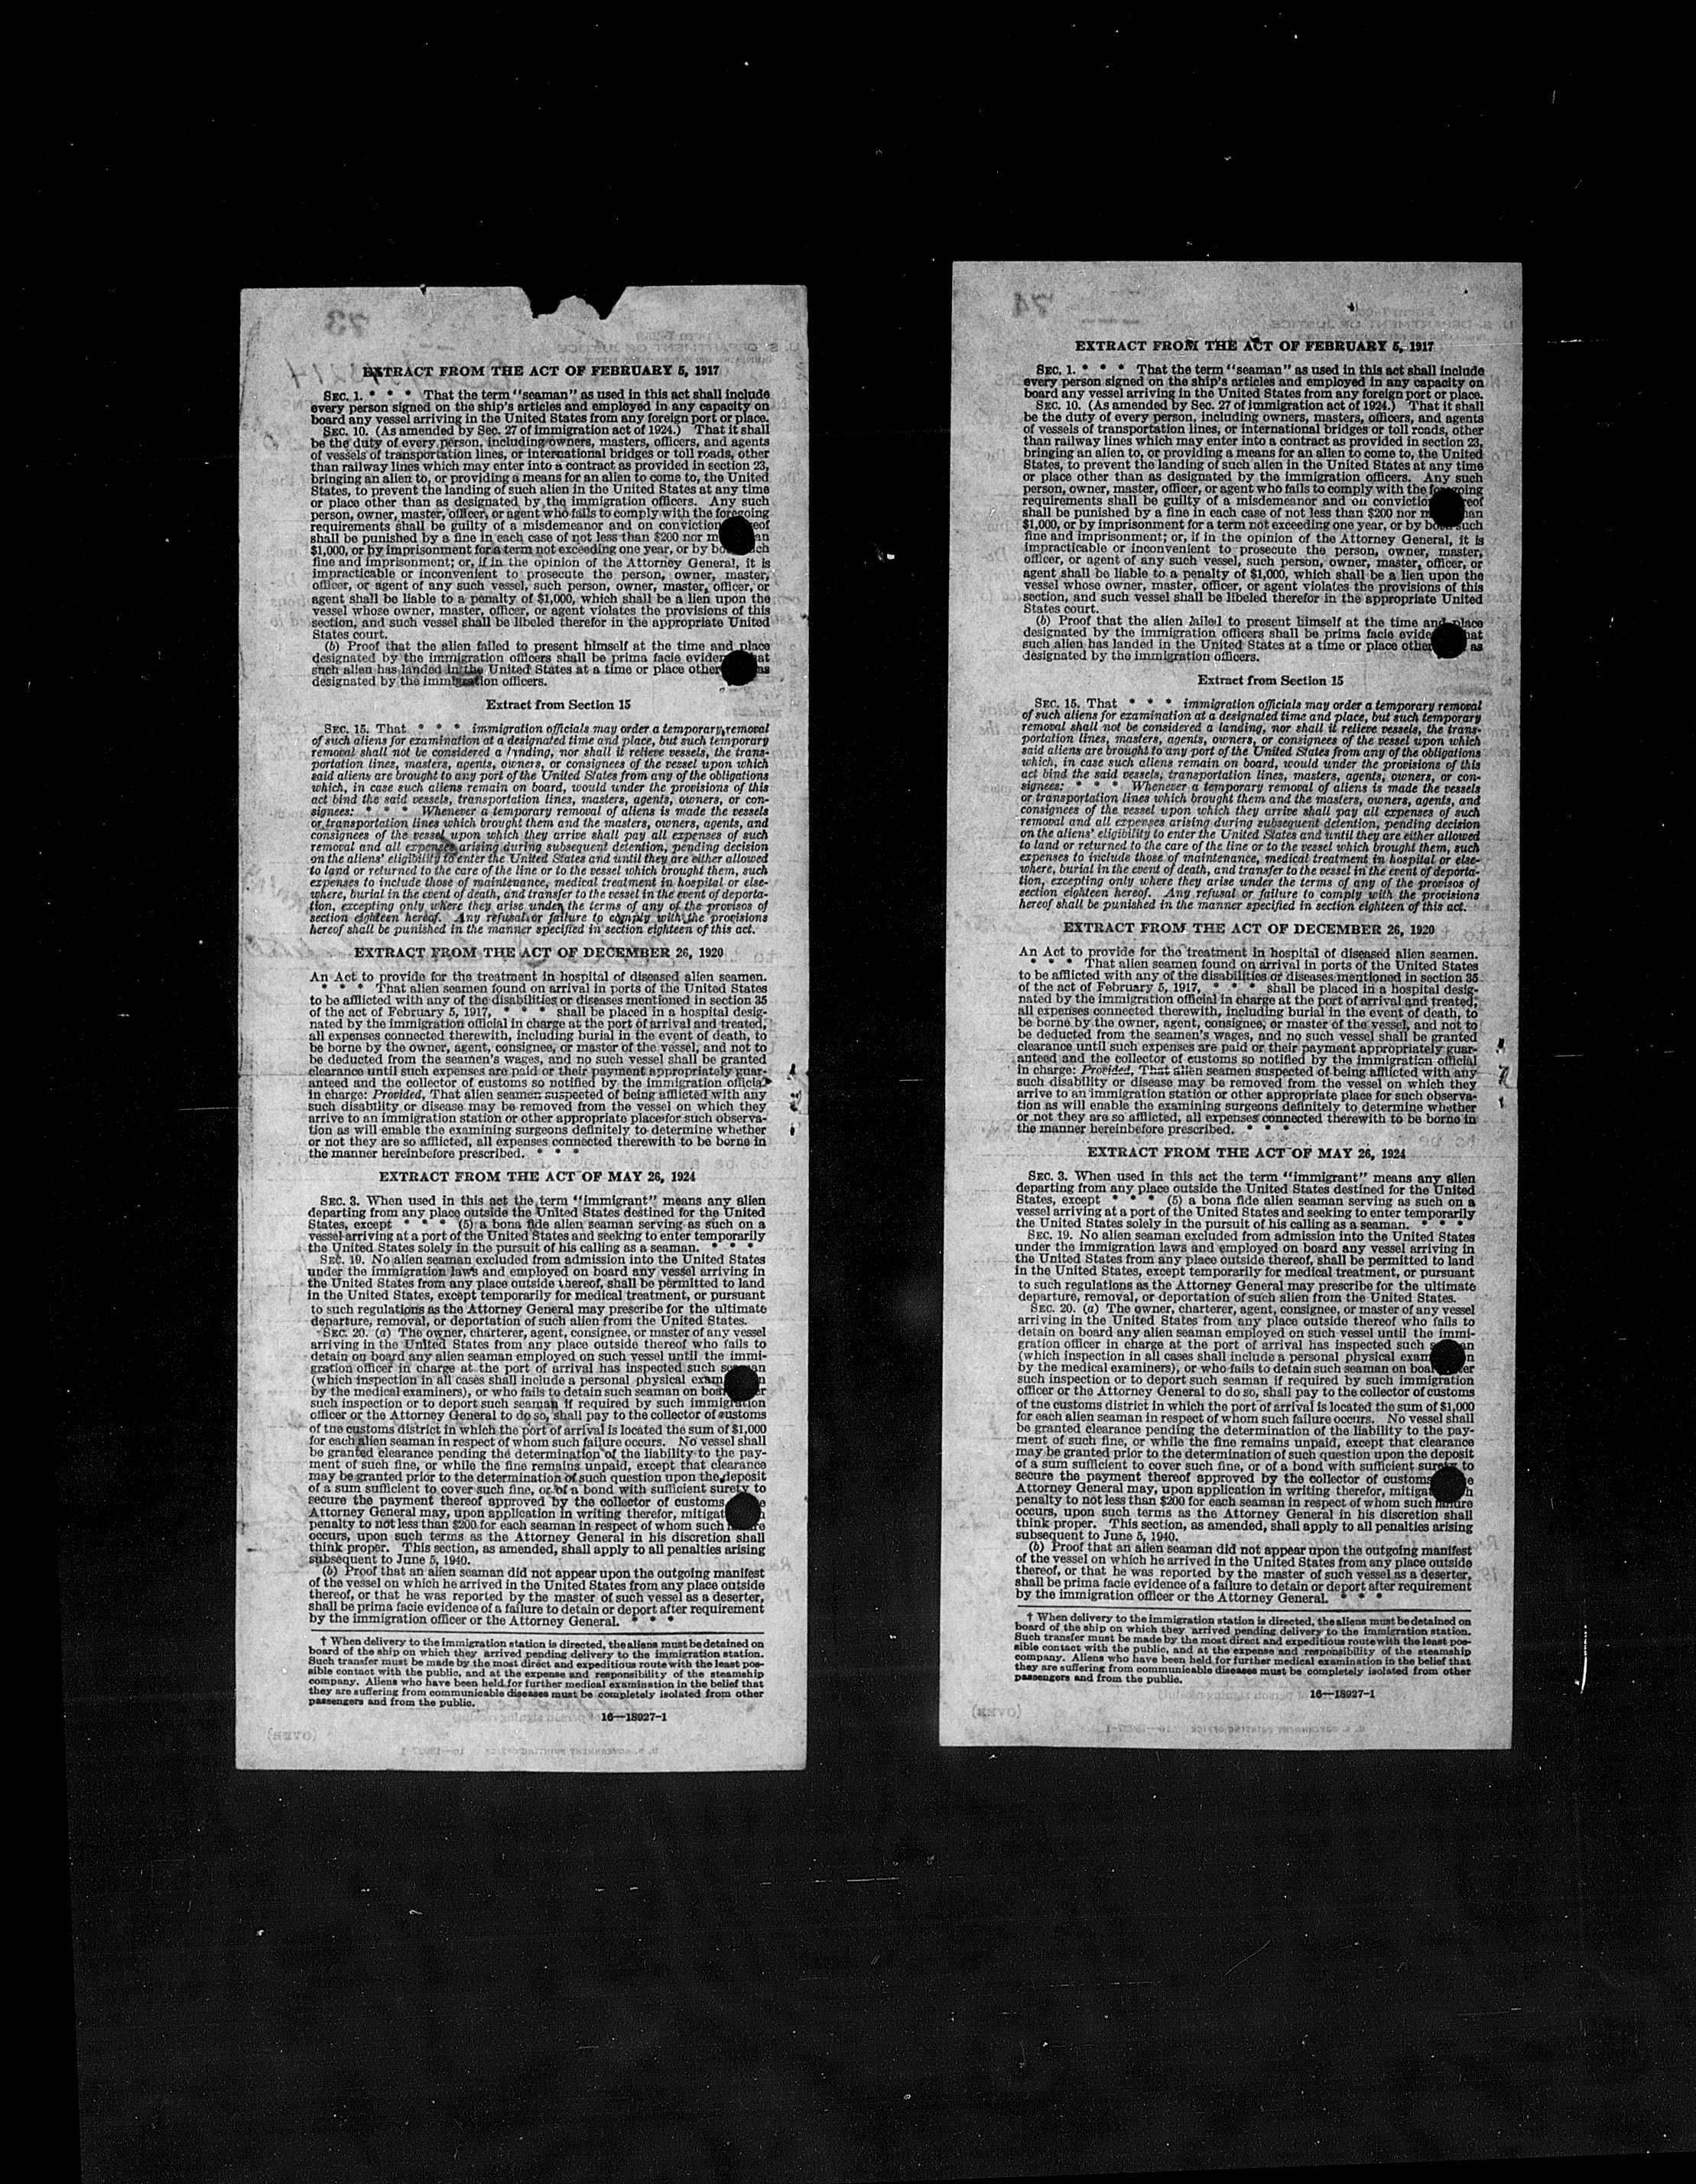 EXTRACT FROM THE ACT OF FEBRUARY 5, 1917
SEC. 1. * * * That the term "seaman" as used in this act shall include
every person signed on the ship's articles and employed in any capacity on
board any vessel arriving in the United States from any foreign port or place.
SEC. 10. (As amended by Sec. 27 of immigration act of 1924.) That it shall
be the duty of every person, including owners, masters, officers, and agents
of vessels of transportation lines, or international bridges or toll roads, other
than railway lines which may enter into a contract as provided in section 23,
bringing an alien to, or providing a means for an alien to come to, the United
States, to prevent the landing of such alien in the United States at any time
or place other than as designated by the immigration officers. Any such
person, owner, master, officer, or agent who fails to comply with the foregoing
requirements shall be guilty of a misdemeanor and on conviction
shall be punished by a fine in each case of not less than $200 nor
$1,000, or by imprisonment for a term not exceeding one year, or by
fine and imprisonment; or, if in the opinion of the Attorney General, it is
impracticable or inconvenient to prosecute the person, owner, master,
officer, or agent of any such vessel, such person, owner, master, officer, or
agent shall be liable to a penalty of $1,000, which shall be a lien upon the
vessel whose owner, master, officer, or agent violates the provisions of this
section, and such vessel shall be libeled therefor in the appropriate United
States court.
(b) Proof that the alien failed to present himself at the time and place
designated by the immigration officers shall be prima facie
such alien has landed in the United States at a time or place other as
designated by the immigration officers.
Extract from Section 15
SEC. 15. That * * * immigration officials may order a temporary removal
of such aliens for examination at a designated time and place, but such temporary
removal shall not be considered a landing, nor shall it relieve vessels, the trans-
portation lines, masters, agents, owners, or consignees of the vessel upon which
said aliens are brought to any port of the United States from any of the obligations
which, in case such aliens remain on board, would under the provisions of this
act bind the said vessels, transportation lines, masters, agents, owners, or con-
signees: * * * Whenever a temporary removal of aliens is made the vessels
or transportation lines which brought them and the masters, owners, agents, and
consignees of the vessel upon which they arrive shall pay all expenses of such
removal and all expenses arising during subsequent detention, pending decision
on the aliens' eligibility to enter the United States and until they are either allowed
to land or returned to the care of the line or to the vessel which brought them, such
expenses to include those of maintenance, medical treatment in hospital or else-
where, burial in the event of death, and transfer to the vessel in the event of deporta-
tion, excepting only where they arise under the terms of any of the provisos of
section eighteen hereof. Any refusal or failure to comply with the provisions
hereof shall be punished in the manner specified in section eighteen of this act.
EXTRACT FROM THE ACT OF DECEMBER 26, 1920
An Act to provide for the treatment in hospital of diseased alien seamen.
* * * That alien seamen found on arrival in ports of the United States
to be afflicted with any of the disabilities or diseases mentioned in section 35
of the act of February 5, 1917, * * * shall be placed in a hospital desig-
nated by the immigration official in charge at the port of arrival and treated,
all expenses connected therewith, including burial in the event of death, to
be borne by the owner, agent, consignee, or master of the vessel, and not to
be deducted from the seamen's wages, and no such vessel shall be granted
clearance until such expenses are paid or their payment appropriately guar-
anteed and the collector of customs so notified by the immigration official
in charge: Provided, That alien seamen suspected of being afflicted with any
such disability or disease may be removed from the vessel on which they
arrive to an immigration station or other appropriate place for such observa-
tion as will enable the examining surgeons definitely to determine whether
or not they are so afflicted, all expenses connected therewith to be borne in
the manner hereinbefore prescribed. * * *
EXTRACT FROM THE ACT OF MAY 26, 1924
SEC. 3. When used in this act the term "immigrant" means any alien
departing from any place outside the United States destined for the United
States, except * * * (5) a bona fide alien seaman serving as such on a
vessel arriving at a port of the United States and seeking to enter temporarily
the United States solely in the pursuit of his calling as a seaman. * * *
SEC. 19. No alien seaman excluded from admission into the United States
under the immigration laws and employed on board any vessel arriving in
the United States from any place outside thereof, shall be permitted to land
in the United States, except temporarily for medical treatment, or pursuant
to such regulations as the Attorney General may prescribe for the ultimate
departure, removal, or deportation of such alien from the United States.
SEC. 20. (a) The owner, charterer, agent, consignee, or master of any vessel
arriving in the United States from any place outside thereof who fails to
detain on board any alien seaman employed on such vessel until the immi-
gration officer in charge at the port of arrival has inspected such seaman
(which inspection in all cases shall include a personal physical
by the medical examiners), or who fails to detain such seaman on
such inspection or to deport such seaman if required by such immigration
officer or the Attorney General to do so, shall pay to the collector of customs
of the customs district in which the port of arrival is located the sum of $1,000
for each alien seaman in respect of whom such failure occurs. No vessel shall
be granted clearance pending the determination of the liability to the pay-
ment of such fine, or while the fine remains unpaid, except that clearance
may be granted prior to the determination of such question upon the deposit
of a sum sufficient to cover such fine, or of a bond with sufficient surety to
secure the payment thereof approved by the collector of customs
Attorney General may, upon application in writing therefor,
penalty to not less than $200 for each seaman in respect of whom such
occurs, upon such terms as the Attorney General in his discretion shall
think proper. This section, as amended, shall apply to all penalties arising
subsequent to June 5, 1940.
(b) Proof that an alien seaman did not appear upon the outgoing manifest
of the vessel on which he arrived in the United States from any place outside
thereof, or that he was reported by the master of such vessel as a deserter,
shall be prima facie evidence of a failure to detain or deport after requirement
by the immigration officer or the Attorney General. * * *
† When delivery to the immigration station is directed, the aliens must be detained on
board of the ship on which they arrived pending delivery to the immigration station.
Such transfer must be made by the most direct and expeditious route with the least pos-
sible contact with the public, and at the expense and responsibility of the steamship
company. Aliens who have been held for further medical examination in the belief that
they are suffering from communicable diseases must be completely isolated from other
passengers and from the public.
16—18927-1
EXTRACT FROM THE ACT OF FEBRUARY 5, 1917
SEC. 1. * * * That the term "seaman" as used in this act shall include
every person signed on the ship's articles and employed in any capacity on
board any vessel arriving in the United States from any foreign port or place.
SEC. 10. (As amended by Sec. 27 of immigration act of 1924.) That it shall
be the duty of every person, including owners, masters, officers, and agents
of vessels of transportation lines, or international bridges or toll roads, other
than railway lines which may enter into a contract as provided in section 23,
bringing an alien to, or providing a means for an alien to come to, the United
States, to prevent the landing of such alien in the United States at any time
or place other than as designated by the immigration officers. Any such
person, owner, master, officer, or agent who fails to comply with the foregoing
requirements shall be guilty of a misdemeanor and on
shall be punished by a fine in each case of not less than $200 nor
$1,000, or by imprisonment for a term not exceeding one year, or by both such
fine and imprisonment; or, if in the opinion of the Attorney General, it is
impracticable or inconvenient to prosecute the person, owner, master,
officer, or agent of any such vessel, such person, owner, master, officer, or
agent shall be liable to a penalty of $1,000, which shall be a lien upon the
vessel whose owner, master, officer, or agent violates the provisions of this
section, and such vessel shall be libeled therefor in the appropriate United
States court.
(b) Proof that the alien failed to present himself at the time and place
designated by the immigration officers shall be prima facie
such alien has landed in the United States at a time or place other as
designated by the immigration officers.
Extract from Section 15
SEC. 15. That * * * immigration officials may order a temporary removal
of such aliens for examination at a designated time and place, but such temporary
removal shall not be considered a landing, nor shall it relieve vessels, the trans-
portation lines, masters, agents, owners, or consignees of the vessel upon which
said aliens are brought to any port of the United States from any of the obligations
which, in case such aliens remain on board, would under the provisions of this
act bind the said vessels, transportation lines, masters, agents, owners, or con-
signees: * * * Whenever a temporary removal of aliens is made the vessels
or transportation lines which brought them and the masters, owners, agents, and
consignees of the vessel upon which they arrive shall pay all expenses of such
removal and all expenses arising during subsequent detention, pending decision
on the aliens' eligibility to enter the United States and until they are either allowed
to land or returned to the care of the line or to the vessel which brought them, such
expenses to include those of maintenance, medical treatment in hospital or else-
where, burial in the event of death, and transfer to the vessel in the event of deporta-
tion, excepting only where they arise under the terms of any of the provisos of
section eighteen hereof. Any refusal or failure to comply with the provisions
hereof shall be punished in the manner specified in section eighteen of this act.
EXTRACT FROM THE ACT OF DECEMBER 26, 1920
An Act to provide for the treatment in hospital of diseased alien seamen.
* * * That alien seamen found on arrival in ports of the United States
to be afflicted with any of the disabilities or diseases mentioned in section 35
of the act of February 5, 1917, * * * shall be placed in a hospital desig-
nated by the immigration official in charge at the port of arrival and treated,
all expenses connected therewith, including burial in the event of death, to
be borne by the owner, agent, consignee, or master of the vessel, and not to
be deducted from the seamen's wages, and no such vessel shall be granted
clearance until such expenses are paid or their payment appropriately guar-
anteed and the collector of customs so notified by the immigration official
in charge: Provided, That alien seamen suspected of being afflicted with any
such disability or disease may be removed from the vessel on which they
arrive to an immigration station or other appropriate place for such observa-
tion as will enable the examining surgeons definitely to determine whether
or not they are so afflicted, all expenses connected therewith to be borne in
the manner hereinbefore prescribed. * * *
EXTRACT FROM THE ACT OF MAY 26, 1924
SEC. 3. When used in this act the term "immigrant" means any alien
departing from any place outside the United States destined for the United
States, except * * * (5) a bona fide alien seaman serving as such on a
vessel arriving at a port of the United States and seeking to enter temporarily
the United States solely in the pursuit of his calling as a seaman. * * *
SEC. 19. No alien seaman excluded from admission into the United States
under the immigration laws and employed on board any vessel arriving in
the United States from any place outside thereof, shall be permitted to land
in the United States, except temporarily for medical treatment, or pursuant
to such regulations as the Attorney General may prescribe for the ultimate
departure, removal, or deportation of such alien from the United States.
SEC. 20. (a) The owner, charterer, agent, consignee, or master of any vessel
arriving in the United States from any place outside thereof who fails to
detain on board any alien seaman employed on such vessel until the immi-
gration officer in charge at the port of arrival has inspected such
(which inspection in all cases shall include a personal physical
by the medical examiners), or who fails to detain such seaman on
such inspection or to deport such seaman if required by such immigration
officer or the Attorney General to do so, shall pay to the collector of customs
of the customs district in which the port of arrival is located the sum of $1,000
for each alien seaman in respect of whom such failure occurs. No vessel shall
be granted clearance pending the determination of the liability to the pay-
ment of such fine, or while the fine remains unpaid, except that clearance
may be granted prior to the determination of such question upon the deposit
of a sum sufficient to cover such fine, or of a bond with sufficient surety to
secure the payment thereof approved by the collector of customs
Attorney General may, upon application in writing therefor,
penalty to not less than $200 for each seaman in respect of whom such failure
occurs, upon such terms as the Attorney General in his discretion shall
think proper. This section, as amended, shall apply to all penalties arising
subsequent to June 5, 1940.
(b) Proof that an alien seaman did not appear upon the outgoing manifest
of the vessel on which he arrived in the United States from any place outside
thereof, or that he was reported by the master of such vessel as a deserter,
shall be prima facie evidence of a failure to detain or deport after requirement
by the immigration officer or the Attorney General. * * *
† When delivery to the immigration station is directed, the aliens must be detained on
board of the ship on which they arrived pending delivery to the immigration station.
Such transfer must be made by the most direct and expeditious route with the least pos-
sible contact with the public, and at the expense and responsibility of the steamship
company. Aliens who have been held for further medical examination in the belief that
they are suffering from communicable diseases must be completely isolated from other
passengers and from the public.
16—18927-1